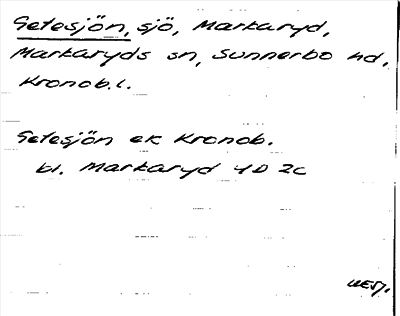 Getesjön, sjö, Markaryd,
Markaryds sn, Sunnerbo hd,
Kronob.l.
Getesjön ek Kronob.
bl. Markaryd 4D 2c